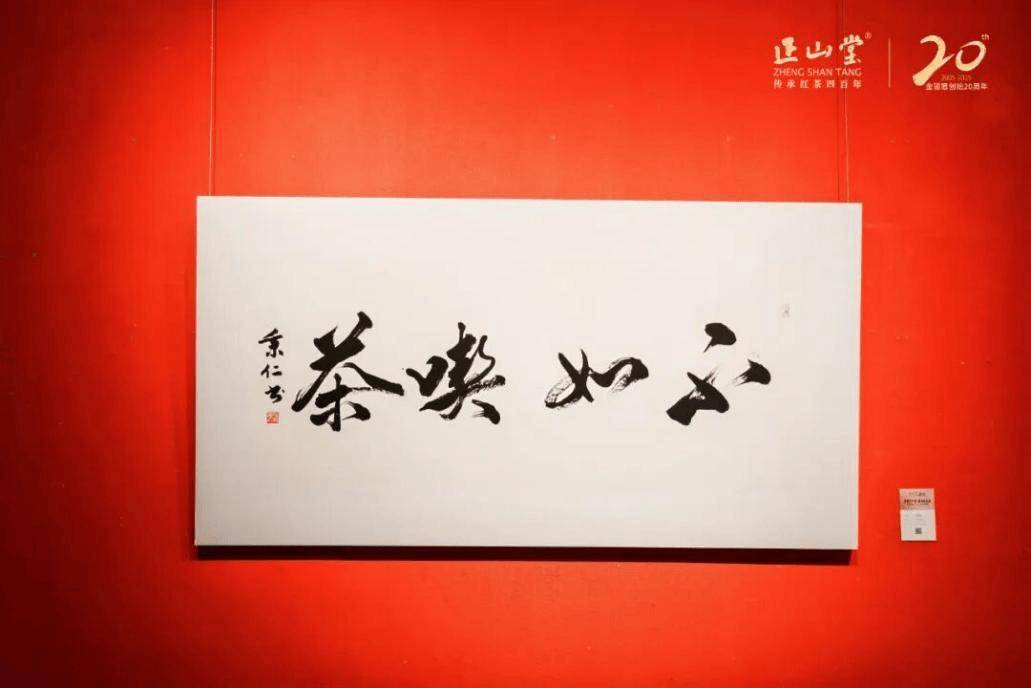 正山堂®
ZHENG SHAN TANG
传承红茶四百年
20th
2005-2025
金骏眉创始20周年
不如喫茶
秉仁书